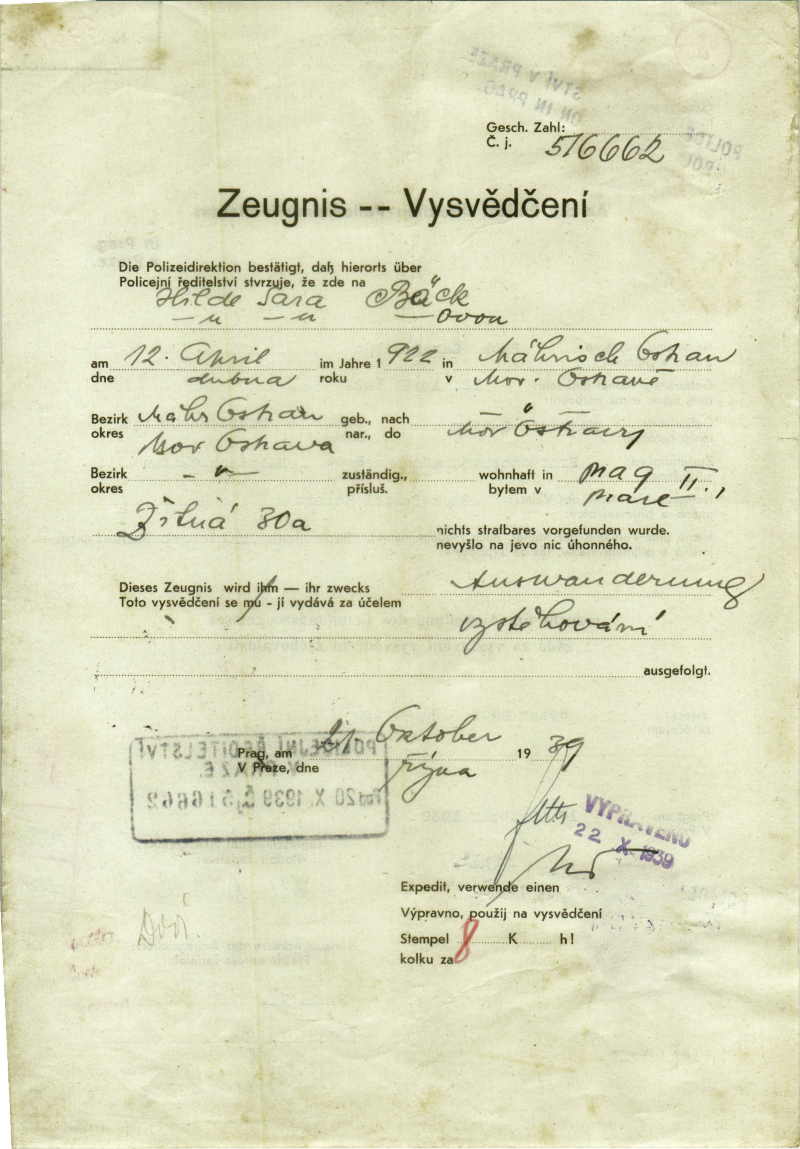 Gesch. Zahl:
Č. j. 516662
Zeugnis -- Vysvědčení
Die Polizeidirektion bestätigt, daß hierorts über
Policejní ředitelství stvrzuje, že zde na
Hilde Sara Bäck
—〃 —〃 —ovou
am 12. April im Jahre 1 922 in Mährisch Ostrau
dne dubna roku v Mor. Ostravě
Bezirk Mähr Ostrau geb., nach
okres Mor Ostrava nar., do Mor Ostravy
Bezirk —〃— zuständig., wohnhaft in Prag II.,
okres přísluš. bytem v Praze
Žitná 30a nichts strafbares vorgefunden wurde.
nevyšlo na jevo nic úhonného.
Dieses Zeugnis wird ihm — ihr zwecks Auswanderung
Toto vysvědčení se mu - jí vydává za účelem
vystěhování
ausgefolgt.
Prag, am 21. Oktober 19 39
V Praze, dne října
POLICEJNÍ ŘEDITELSTVÍ
V PRAZE
20 X. 1939 Č.j. 516662
VYPRAVENO
22 X. 1939
Expedit, verwende einen
Výpravno, použij na vysvědčení
Stempel 8 K h!
kolku za